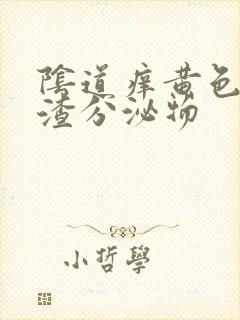 陰道痒黄色
渣分泌物
小哲學